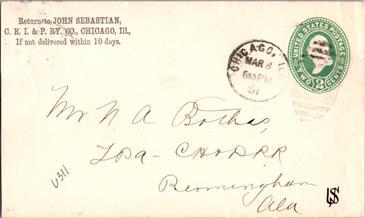 Return to JOHN SEBASTIAN,
C. R. I. & P. RY. CO., CHICAGO, Ill.,
If not delivered within 10 days.
UNITED STATES POSTAGE
TWO 2 CENTS
CHICAGO, ILL
MAR 8
PM
91
Mr N A
Birmingham
Ala
U311
US